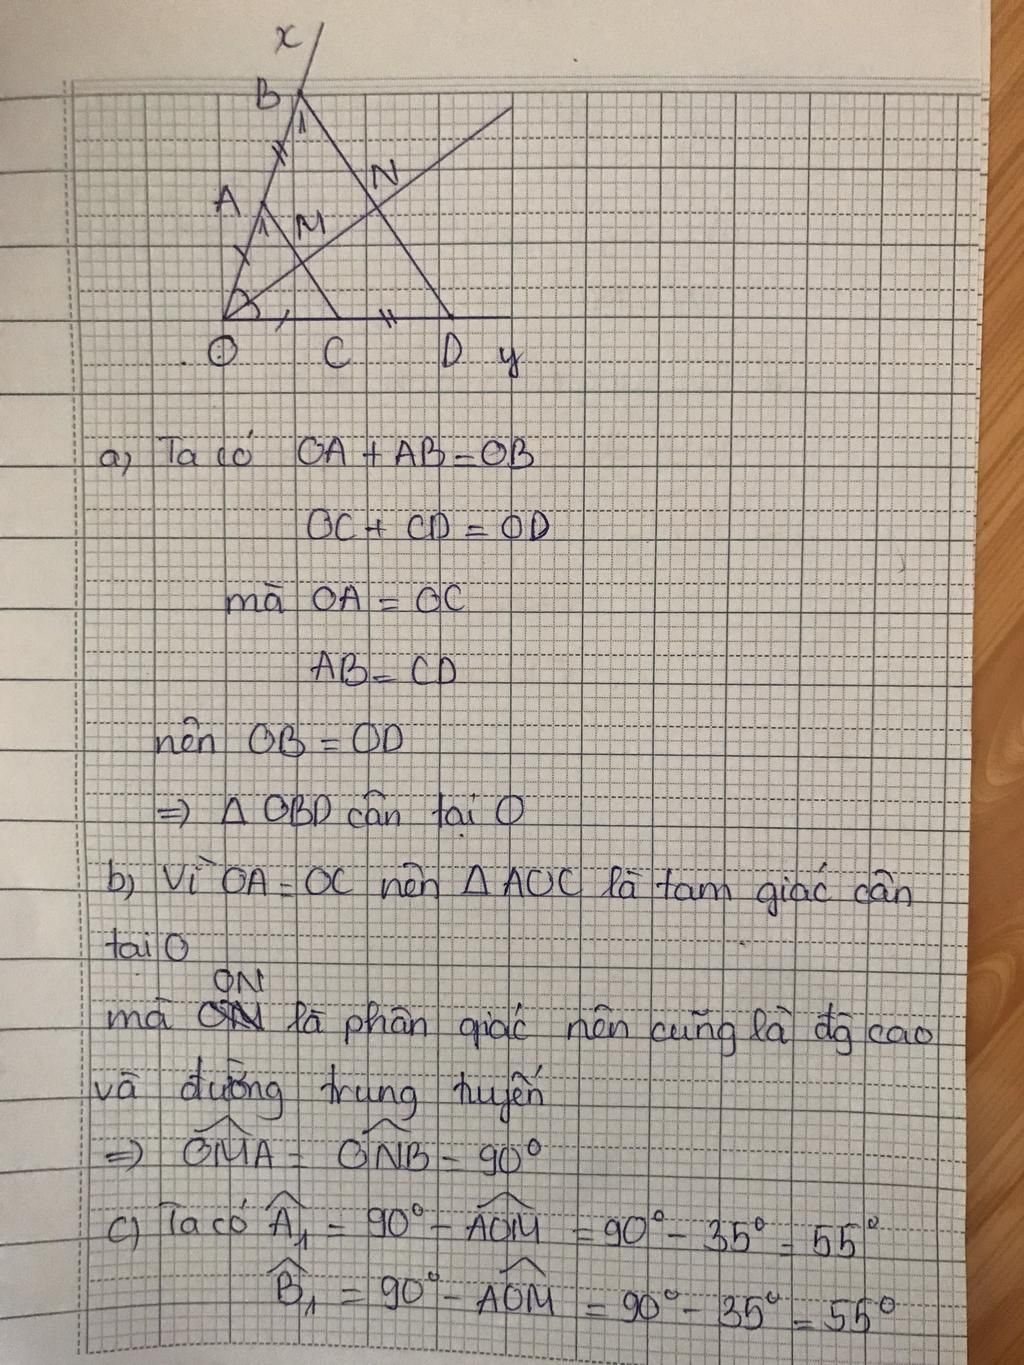 x
B
1
N
A
1 M
O C D y
a) Ta có OA + AB = OB
OC + CD = OD
mà OA = OC
AB = CD
nên OB = OD
=> Δ OBD cân tại O
b) Vì OA = OC nên Δ AOC là tam giác cân
tại O
ON
mà là phân giác nên cũng là đg cao
và đường trung tuyến
=> \widehat{OMA} = \widehat{ONB} = 90°
c) Ta có \widehat{A}₁ = 90° - \widehat{AOM} = 90° - 35° = 55°
\widehat{B}₁ = 90° - \widehat{AOM} = 90° - 35° = 55°